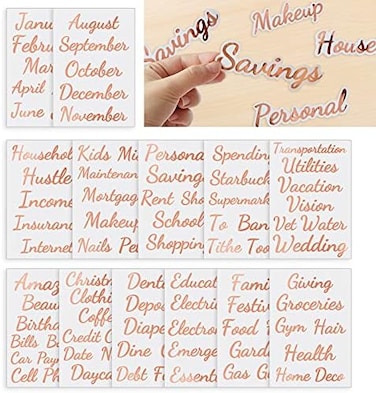 Janu
Febru
Mar
April
June
August
September
October
December
November
Savings
Makeup
House
Savings
Personal
Househol
Hustle
Income
Insuran
Internet
Kids Mi
Maintenan
Mortgag
Makeup
Nails Pe
Persona
Saving
Rent Sho
School
Shoppin
Spendin
Starbuck
Supermark
To Ban
Tithe Too
Transportation
Utilities
Vacation
Vision
Vet Water
Wedding
Amaz
Beau
Birthda
Bills B
Car Paym
Cell Ph
Christm
Clothi
Coffe
Credit C
Date N
Dayca
Denti
Depos
Diape
Dine O
Debt F
Educat
Electri
Electron
Emerge
Essenti
Fami
Festiv
Food
Gard
Gas G
Giving
Groceries
Gym Hair
Health
Home Deco